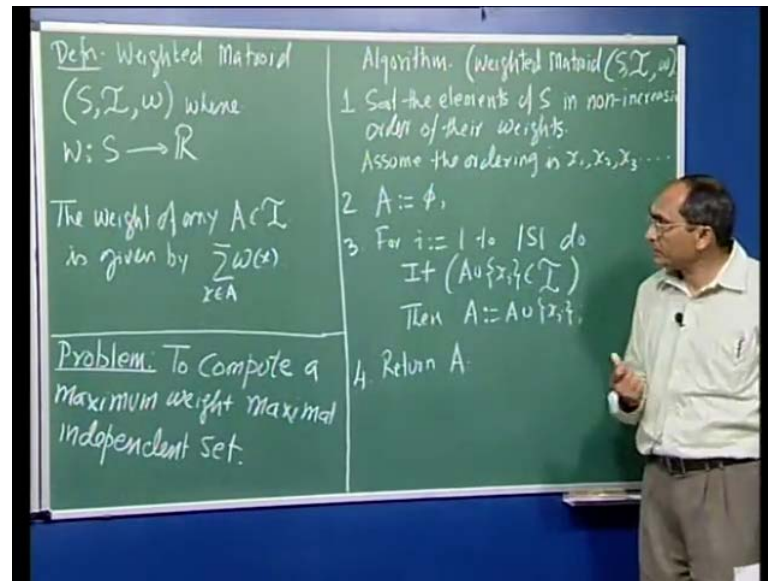 Defn. Weighted Matroid
(S, I, w) where
w: S → R
The weight of any A ∈ I
is given by Σ w(x)
x∈A
Problem: To compute a
maximum weight maximal
independent set.
Algorithm. (Weighted Matroid (S, I, w)
1 Sort the elements of S in non-increasi
order of their weights.
Assume the ordering is x₁, x₂, x₃ ....
2 A := φ;
3. For i := 1 to |S| do
If (A∪{xᵢ} ∈ I)
Then A := A∪{xᵢ};
4. Return A.